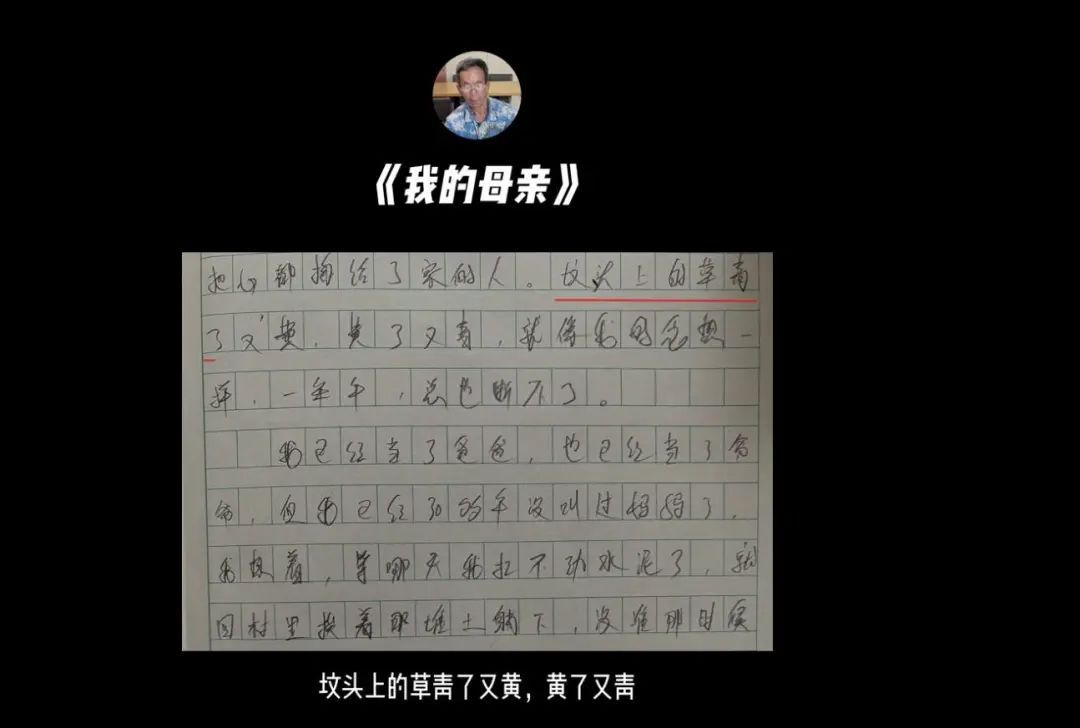 《我的母亲》
把心都掏给了家的人。坟头上的草青
了又黄，黄了又青，就像我的思想一
样，一年年，总也断不了。
我已经当了爸爸，也已经当了爷
爷，但我已经30多年没叫过妈妈了。
我想着，等哪天我扛不动水泥了，就
回村里挨着那堆土躺下，没准那时候
坟头上的草青了又黄，黄了又青